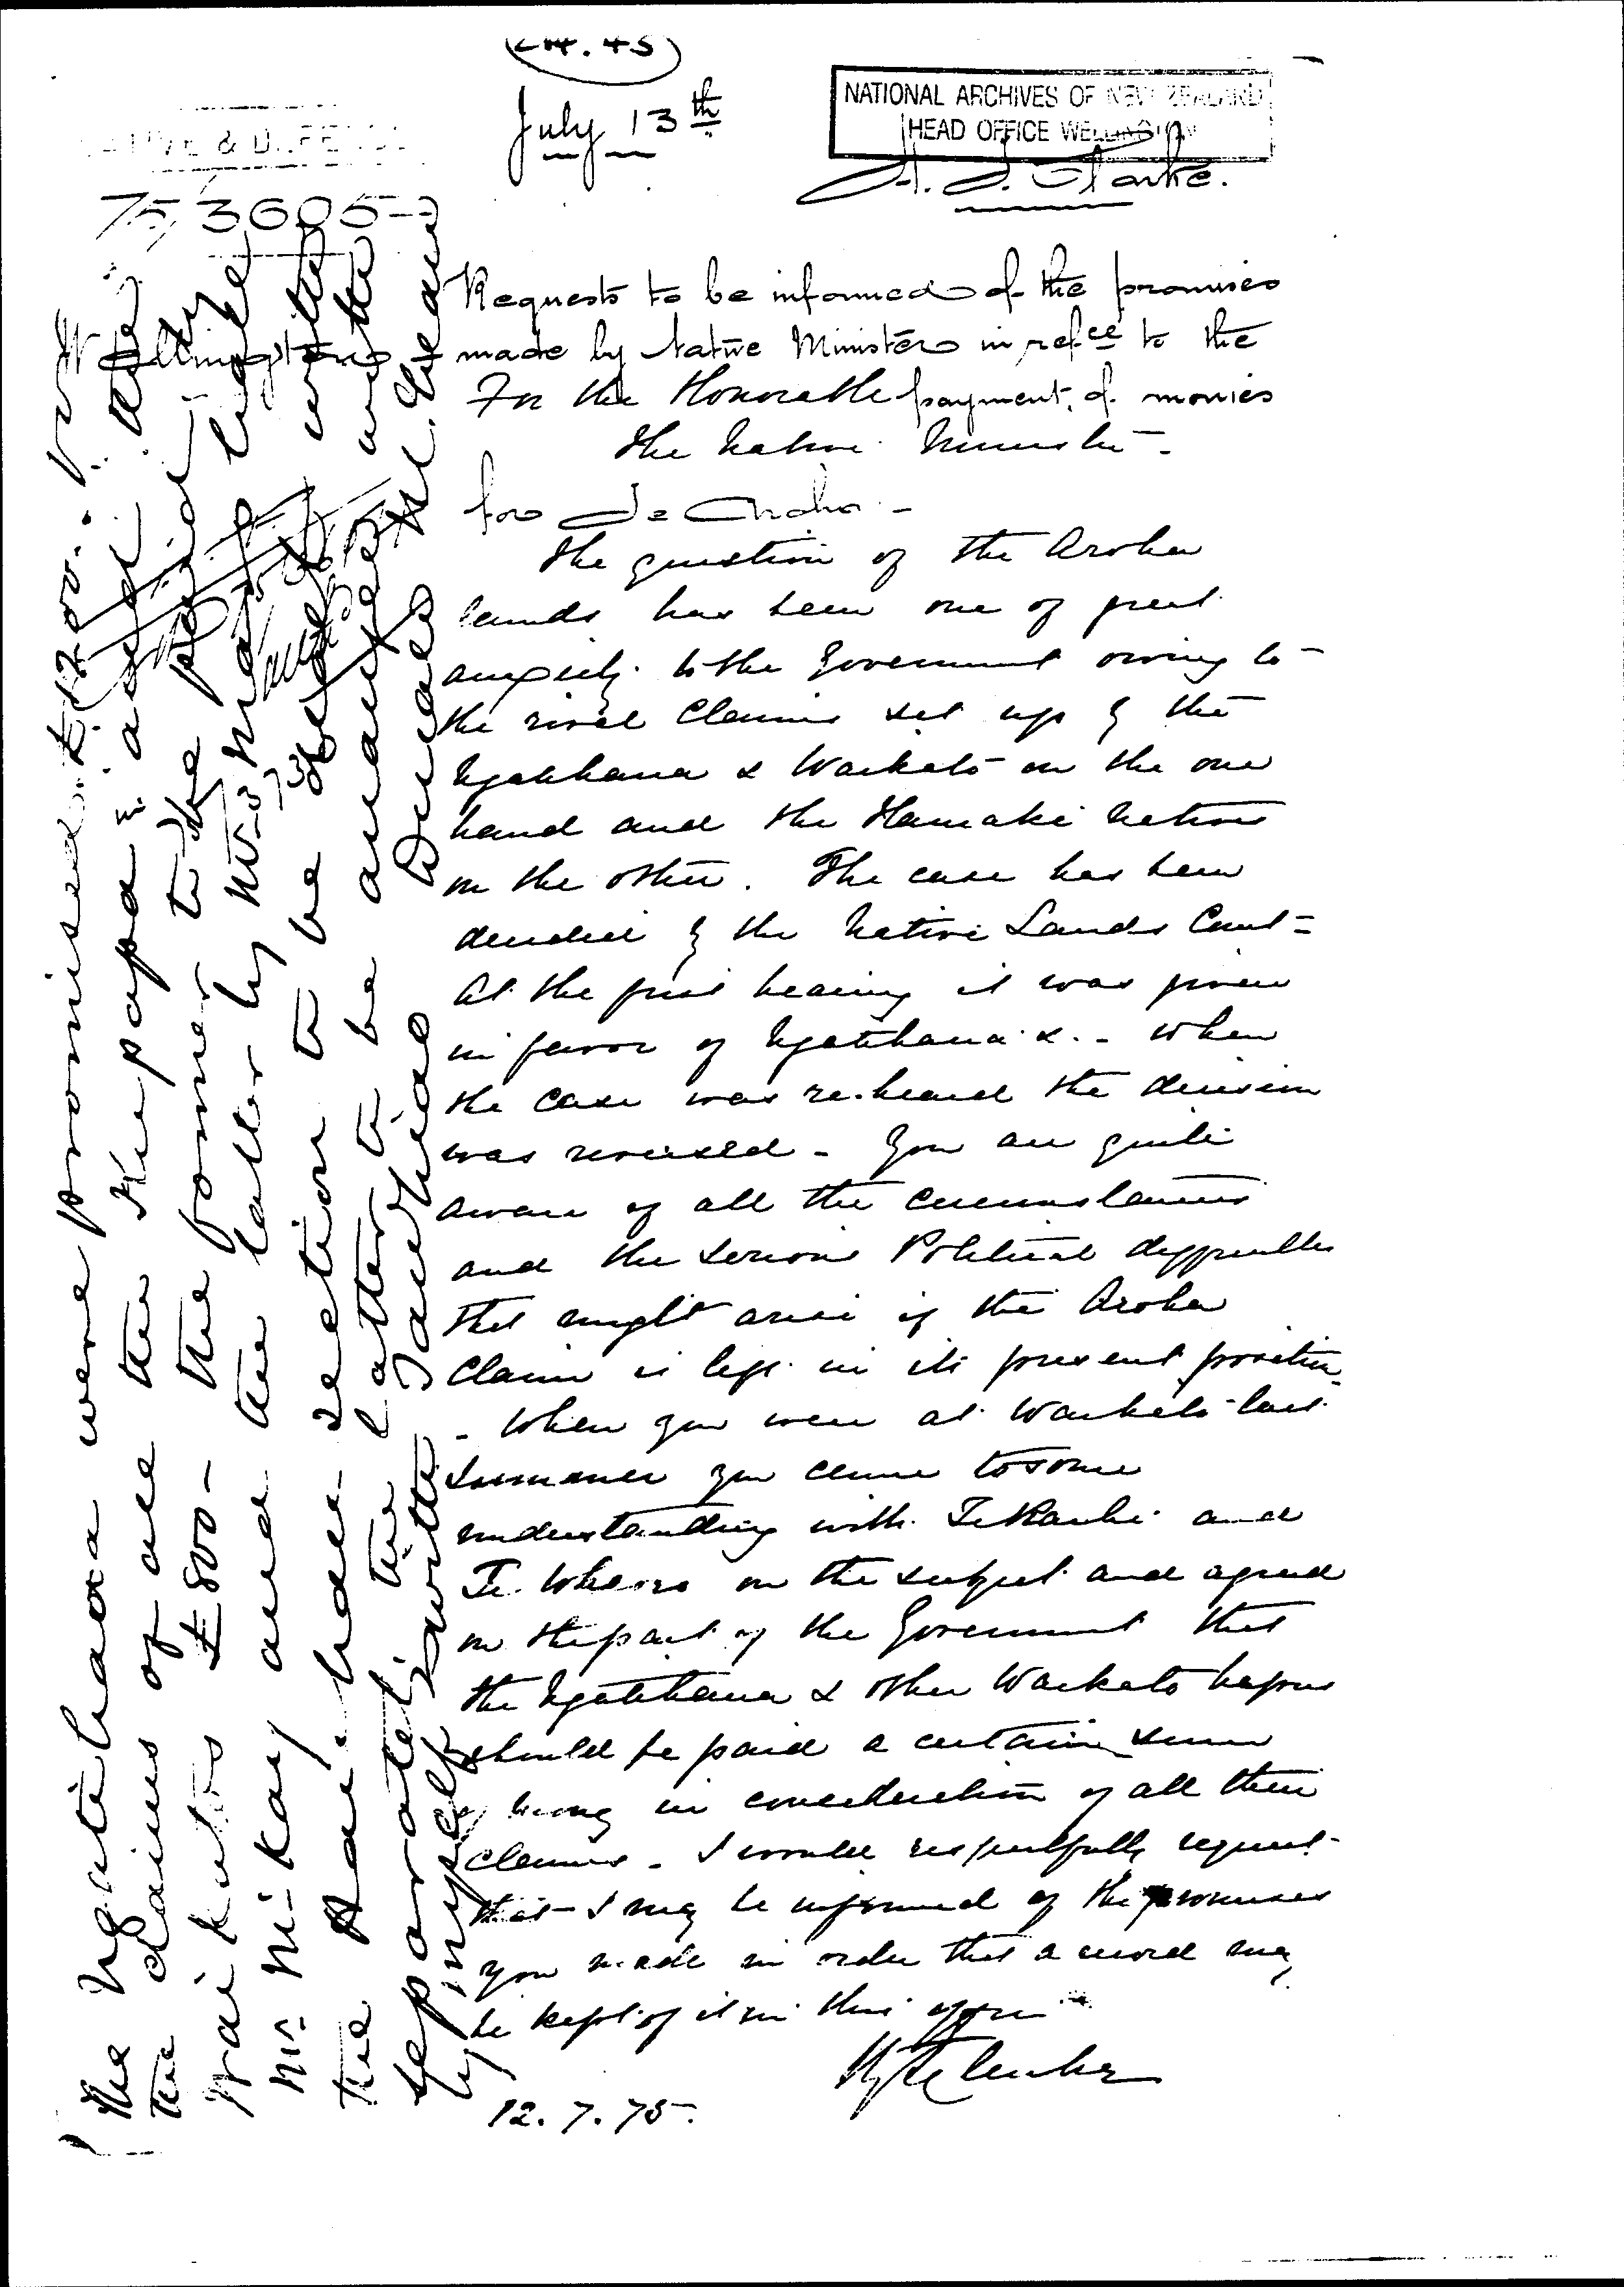 July 13th
NATIONAL ARCHIVES OF NEW ZEALAND
HEAD OFFICE WELLINGTON
H. T. Clarke.
NATIVE & DEFENCE
75/3605
Wellington
Requests to be informed of the promises
made by Native Minister in refce to the
payment of monies
for Te Aroha -
For the Honorable
the Native Minister -
The question of the Aroha
lands has been one of great
anxiety to the Government owing to
the rival Claims set up by the
Ngatihaua & Waikato on the one
hand and the Hauraki natives
on the other. The case has been
decided by the Native Lands Court -
At the first hearing it was given
in favor of Ngatihaua &. - When
the case was re-heard the decision
was reversed - You are quite
aware of all the circumstances
and the serious Political difficulties
that might arise if the Aroha
Claim is left in its present position
- When you were at Waikato last
Summer you came to some
understanding with Te Raihi and
Te Wheoro on the subject and agreed
on the part of the Government that
the Ngatihaua & other Waikato hapus
should be paid a certain sum
of money in consideration of all their
claims - I would respectfully request
that I may be informed of the promises
you made in order that a record may
be kept of it in this office
HTClarke
12.7.75.
The Ngatihaua were promised £1200.
the claims of all the Kukapa
Waikatos £800 - the former to be paid by
Mr. McKay and the latter by Mr.
the section to be
the latter to be arranged with
separately with Tawhiao
by myself